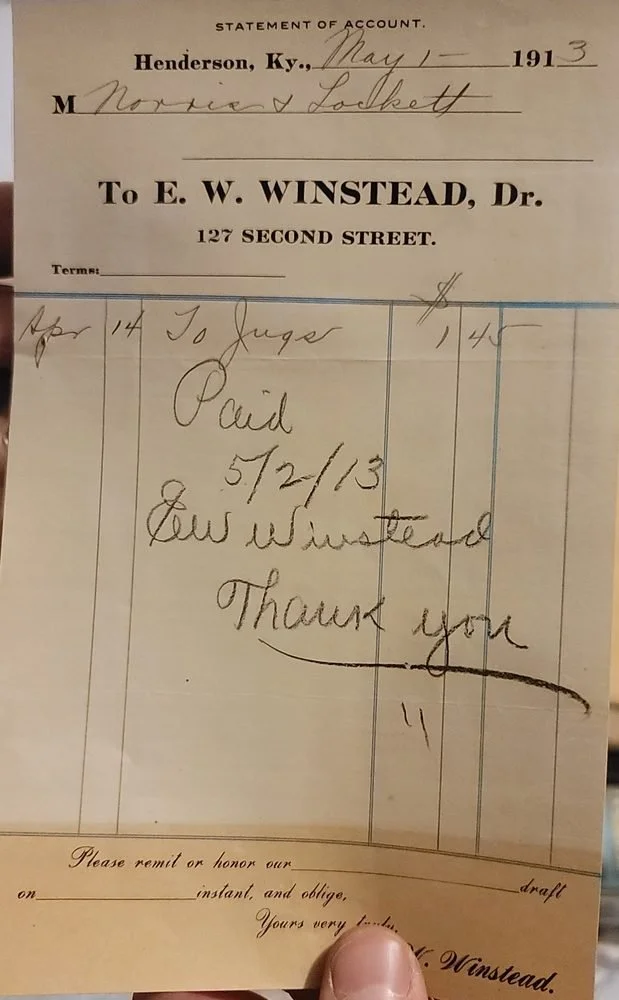 STATEMENT OF ACCOUNT.
Henderson, Ky., May 1 - 1913
M Norris & Lockett
To E. W. WINSTEAD, Dr.
127 SECOND STREET.
Terms:
$
Apr 14 To Jugs 1 45
Paid
5/2/13
EW Winstead
Thank you
11
Please remit or honor our draft
on instant, and oblige,
Yours very truly,
W. Winstead.